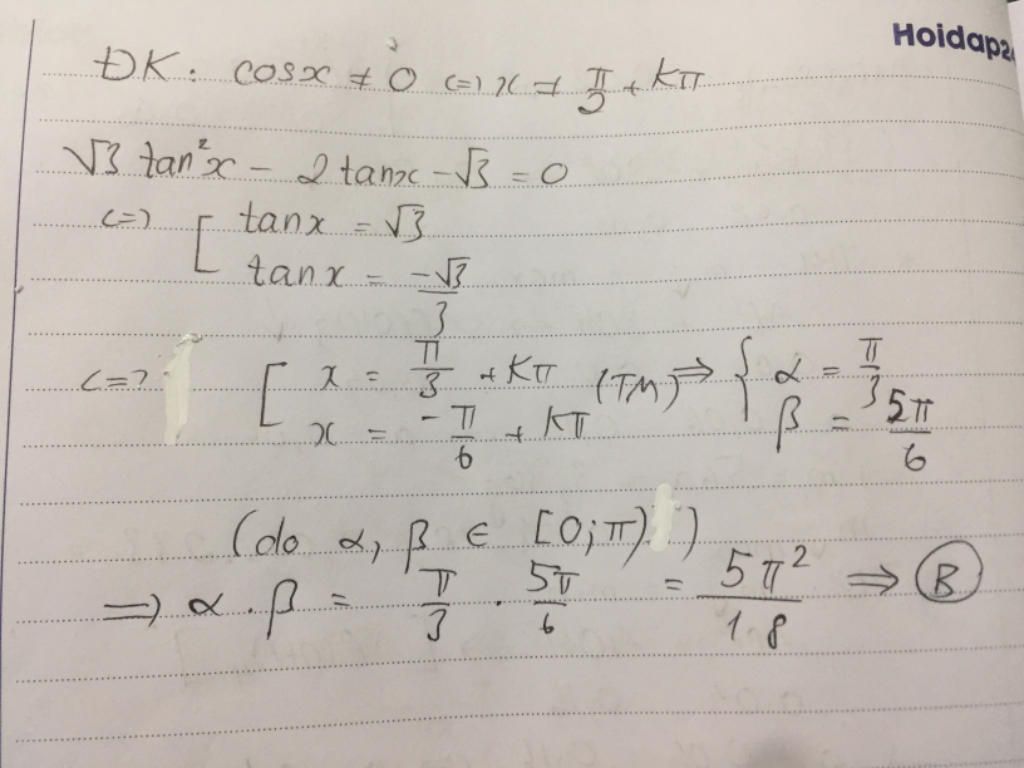 Hoidap2
ĐK: cosx ≠ 0 <=> x ≠ π/2 + kπ
√3 tan²x - 2 tanx - √3 = 0
<=> [ tanx = √3
tanx = -√3/3
<=> [ x = π/3 + kπ (TM) => { α = π/3
x = -π/6 + kπ β = 5π/6
(do α, β ∈ [0; π))
=> α . β = π/3 . 5π/6 = 5π²/18 => B